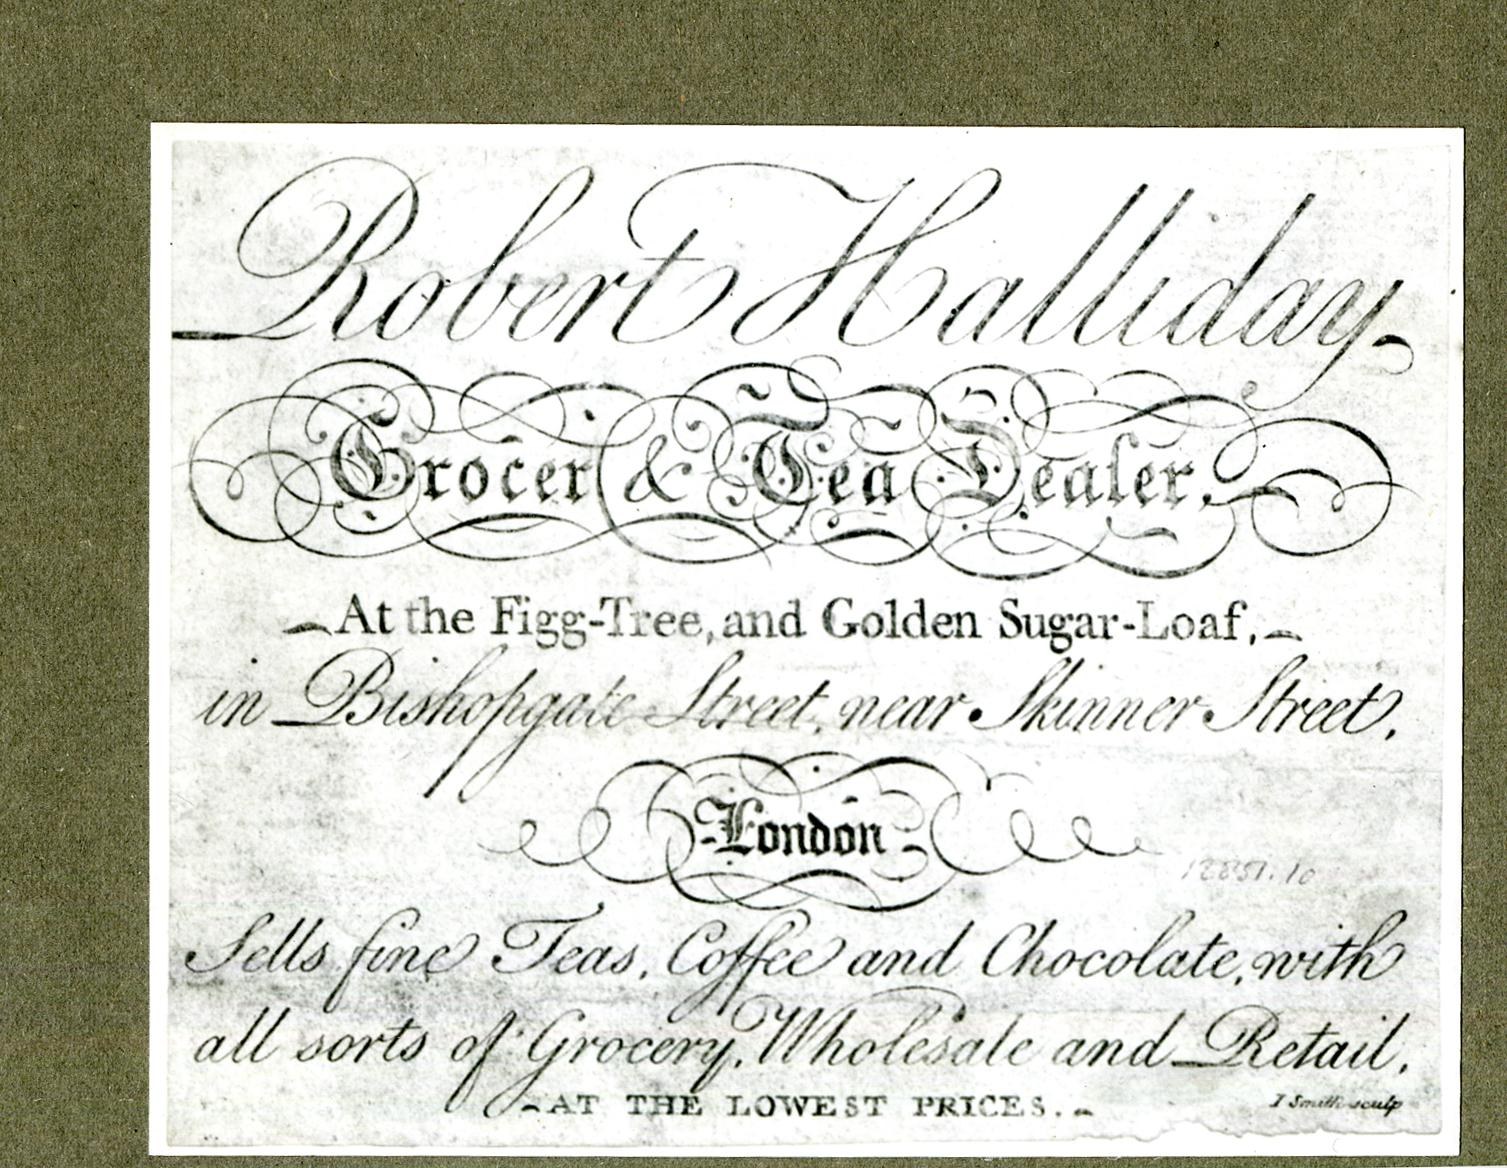 Robert Halliday
Grocer & Tea Dealer,
At the Figg-Tree, and Golden Sugar-Loaf,
in Bishopgate Street, near Skinner Street,
London
12851.10
Sells fine Teas, Coffee and Chocolate, with
all sorts of Grocery, Wholesale and Retail,
AT THE LOWEST PRICES.
I Smith sculp